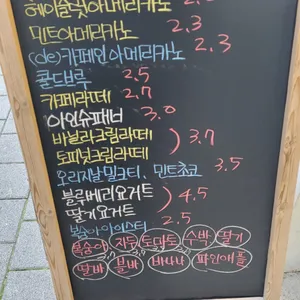 헤이즐넛아메리카노
민트아메리카노 2.3
(de)카페인아메리카노 2.3
콜드브루 2.5
카페라떼 2.7
아인슈패너 3.0
바닐라크림라떼
토피넛크림라떼 ) 3.7
오리지날밀크티, 민트초코 3.5
블루베리요거트
딸기요거트 ) 4.5
복숭아아이스티 2.5
복숭아 자두 토마토 수박 딸기
딸바 블바 바나나 파인애플